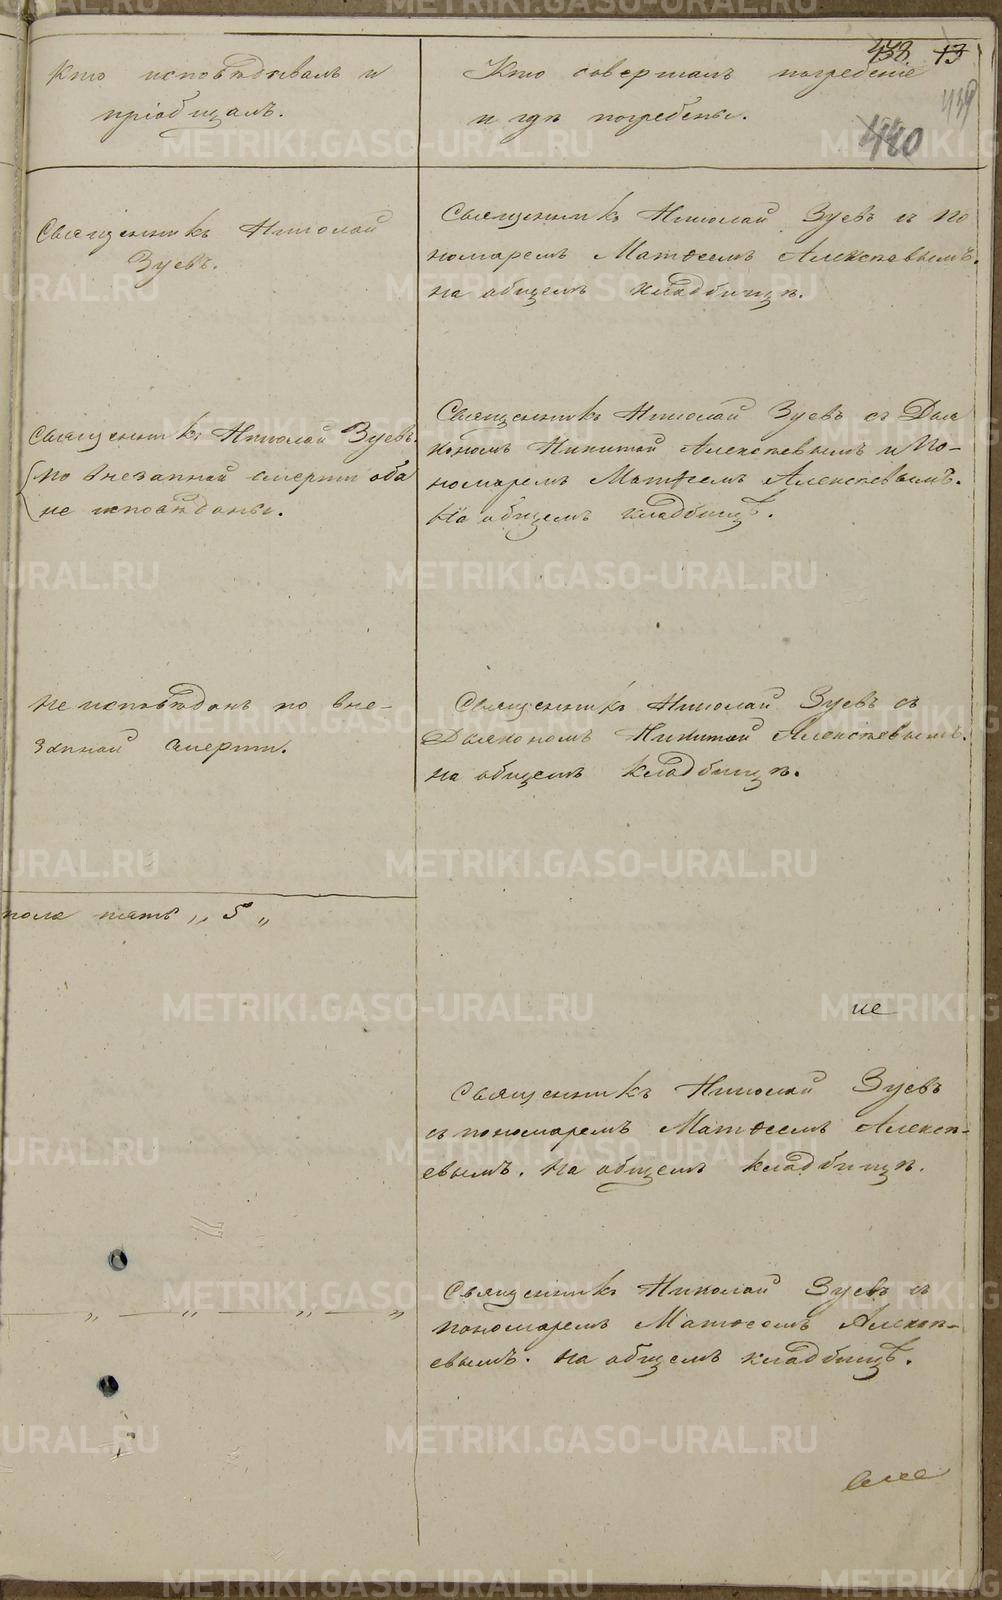 438. 13
439
440
Кто исповѣдывалъ и
пріобщалъ.
Кто совершалъ погребеніе
и гдѣ погребены.
Священникъ Николай
Зуевъ.
Священникъ Николай Зуевъ съ по
номаремъ Матѳеемъ Алексѣевымъ.
на общемъ кладбищѣ.
Священникъ Николай Зуевъ.
по внезапной смерти оба
не исповѣданы.
Священникъ Николай Зуевъ съ Дья
кономъ Никитой Алексѣевымъ и По-
номаремъ Матѳеемъ Алексѣевымъ.
На общемъ кладбищѣ.
Не исповѣданъ по вне-
запной смерти.
Священникъ Николай Зуевъ съ
Дьякономъ Никитой Алексѣевымъ.
на общемъ кладбищѣ.
пола пять „ 5 „
Священникъ Николай Зуевъ
съ пономаремъ Матѳеемъ Алексѣ-
евымъ. на общемъ кладбищѣ.
„ „ „ „
Священникъ Николай Зуевъ съ
пономаремъ Матѳеемъ Алексѣ-
евымъ. на общемъ кладбищѣ.
METRIKI.GASO-URAL.RU